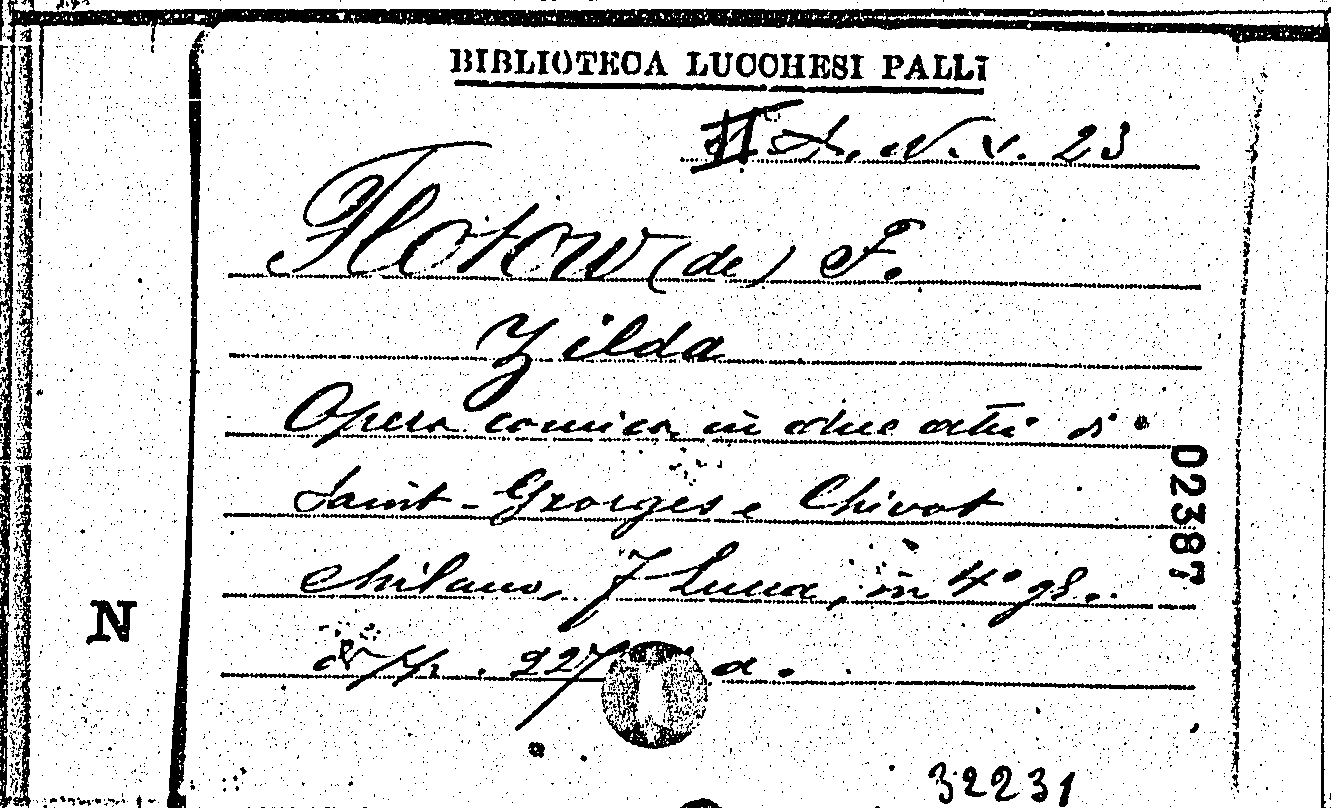 BIBLIOTECA LUCCHESI PALLI
II A. N. V. 23
Flotow (de) F.
Zilda
Opera comica in due atti di
Saint-Georges e Chivot
Milano, F Lucca, in 4° gr.
di pp. 227 a.
02387
N
32231